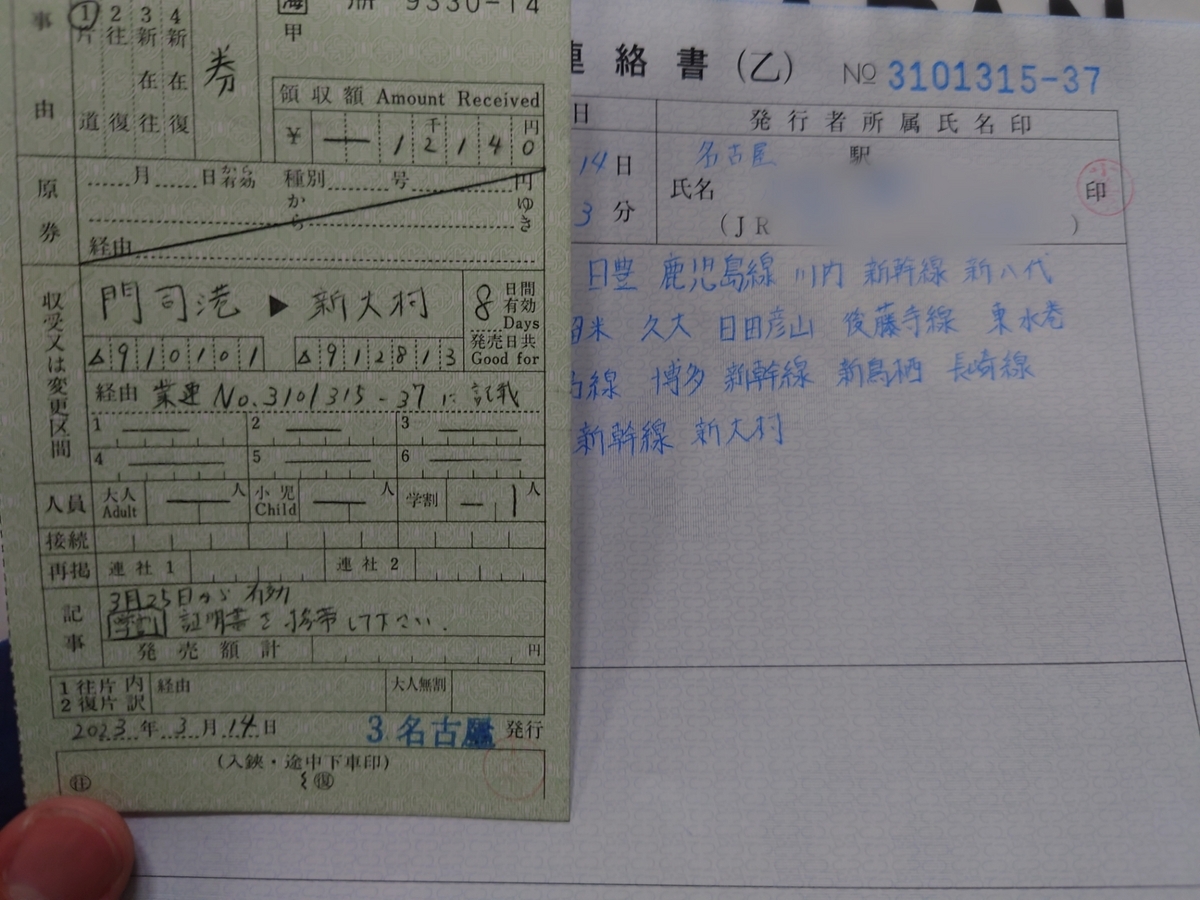 事由
1 片道
2 往復
3 新在往
4 新在復
券
海
甲
9330-14
領収額 Amount Received
千 円
¥ 12140
原券
月 日から有効 種別 号 円
から ゆき
経由
収受又は変更区間
門司港 ▶ 新大村
8 日間有効 Days
発売日共 Good for
△910101 △912813
経由 業連 No.3101315-37 に記載
1 2 3
4 5 6
人員 大人 Adult 人 小児 Child 人 学割 1 人
接続
再掲 連社1 連社2
記事
3月25日から有効
学割 証明書を携帯して下さい.
発売額計 円
1 往片 内
2 復片 訳
経由 大人無割
2023年3月14日 3 名古屋 発行
(入鋏・途中下車印)
往 復
連絡書(乙) № 3101315-37
日 発行者所属氏名印
14日 名古屋 駅
3分 氏名 印
(JR )
日豊 鹿児島線 川内 新幹線 新八代
留米 久大 日田彦山 後藤寺線 東水巻
線 博多 新幹線 新鳥栖 長崎線
新幹線 新大村